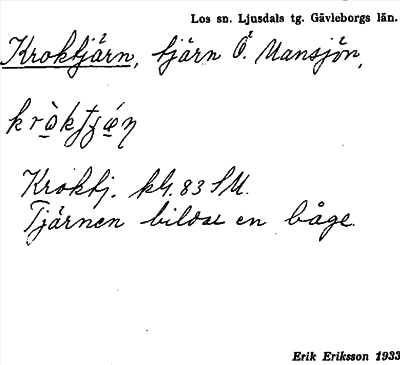 Los sn. Ljusdals tg. Gävleborgs län.
Kroktjärn, tjärn Ö. Mansjön,
Kroktj. kbl. 83 SM.
Tjärnen bildar en båge.
Erik Eriksson 1933